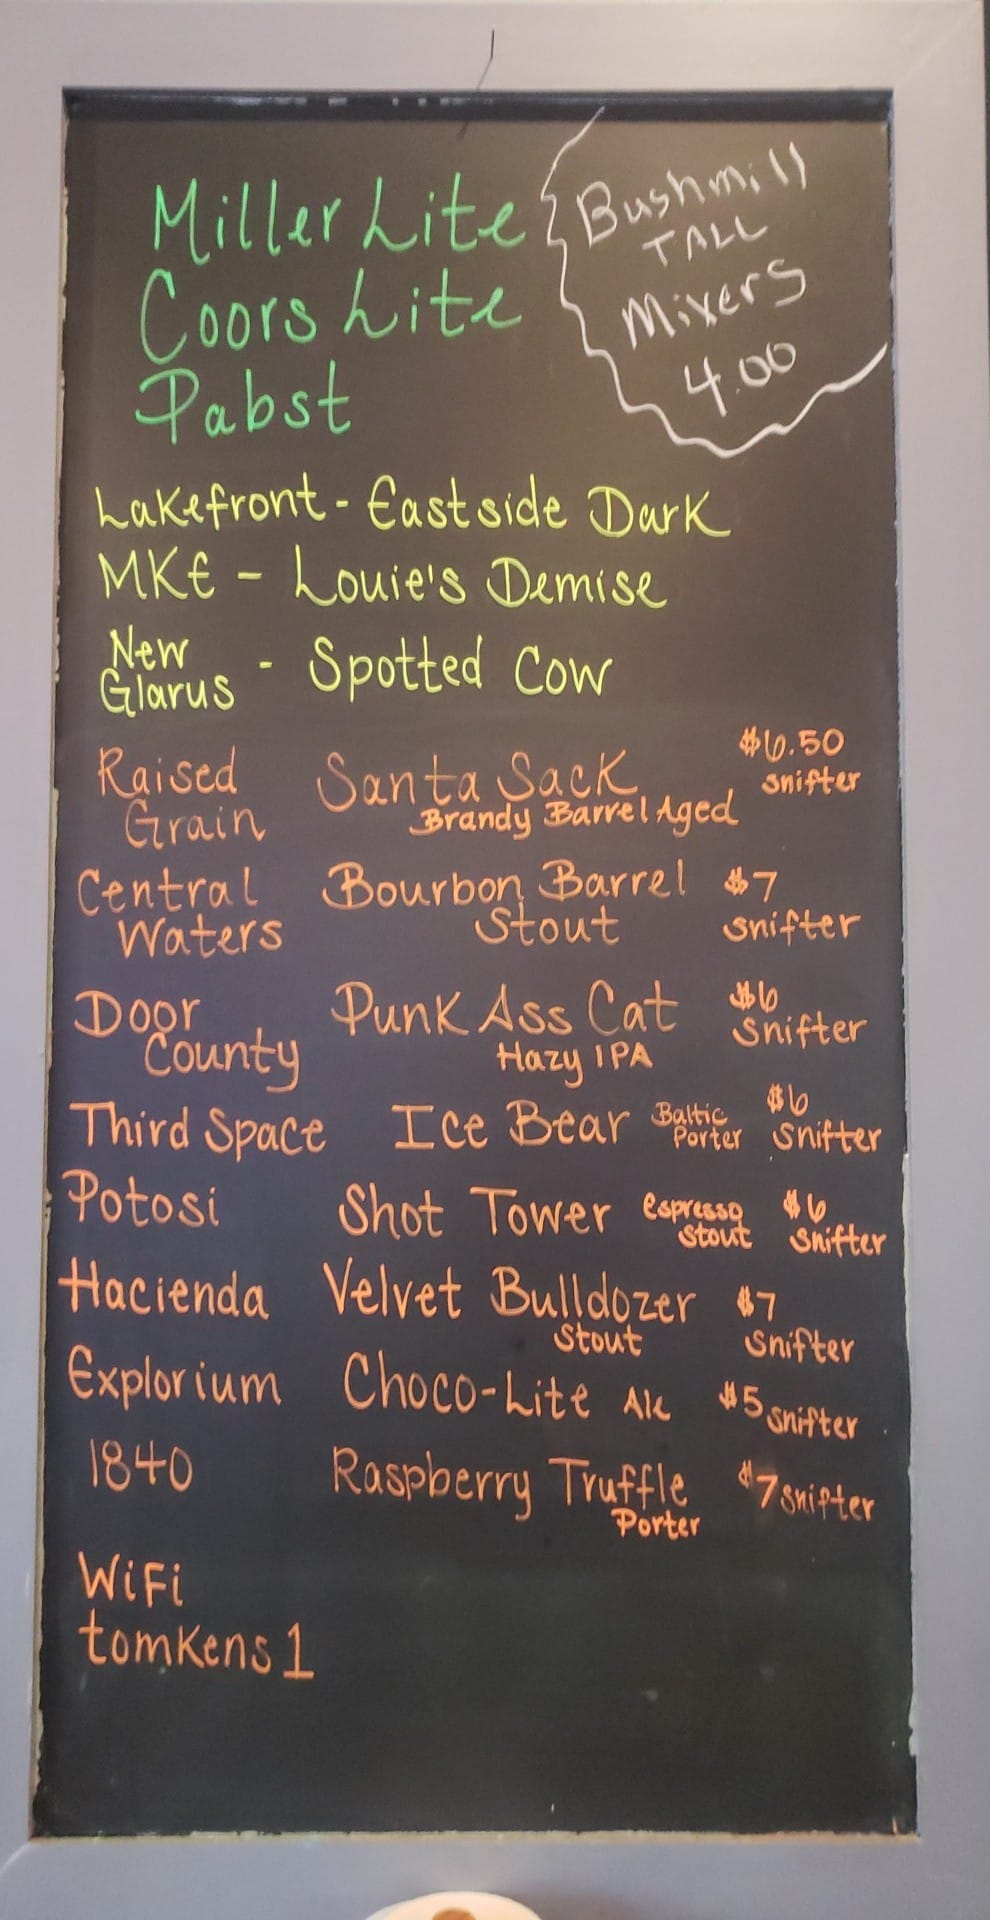 Miller Lite
Coors Lite
Pabst
Bushmill
TALL
Mixers
4.00
Lakefront - Eastside Dark
MKE - Louie's Demise
New
Glarus - Spotted Cow
Raised Santa Sack $6.50
Grain Brandy Barrel Aged snifter
Central Bourbon Barrel $7
Waters Stout snifter
Door Punk Ass Cat $6
County Hazy IPA Snifter
Third Space Ice Bear Baltic Porter $6 Snifter
Potosi Shot Tower espresso stout $6 Snifter
Hacienda Velvet Bulldozer $7
Stout Snifter
Explorium Choco-Lite Ale $5 snifter
1840 Raspberry Truffle $7 snifter
Porter
WiFi
tomkens1